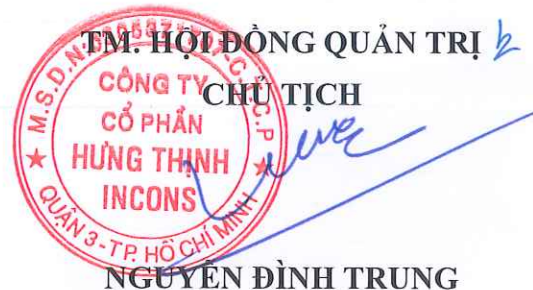 TM. HỘI ĐỒNG QUẢN TRỊ
CHỦ TỊCH
CÔNG TY
CỔ PHẦN
HƯNG THỊNH
INCONS
QUẬN 3 - T.P. HỒ CHÍ MINH
NGUYỄN ĐÌNH TRUNG